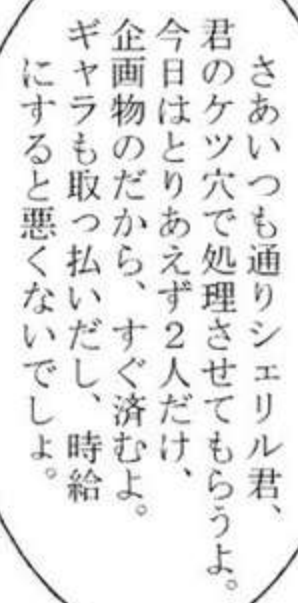 さあいつも通りシェリル君、
君のケツ穴で処理させてもらうよ。
今日はとりあえず2人だけ、
企画物のだから、すぐ済むよ。
ギャラも取っ払いだし、時給
にすると悪くないでしょ。